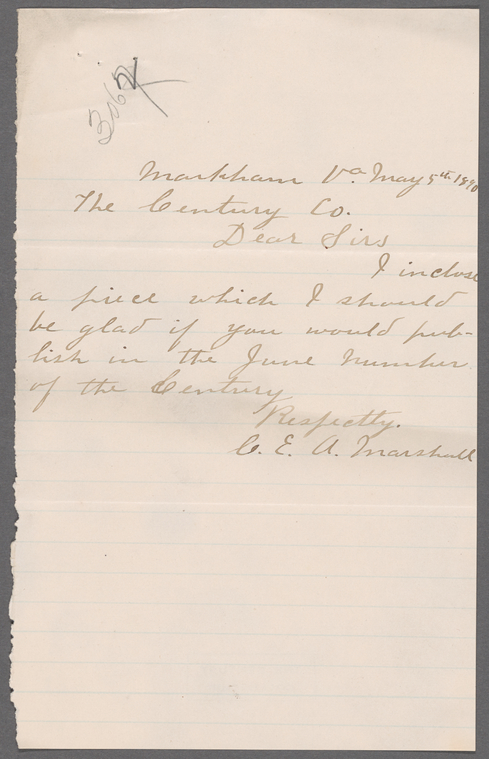 Markham Va. May 5th. 1890
The Century Co.
Dear Sirs
I inclose
a piece which I should
be glad if you would pub-
lish in the June number
of the Century
Respectly.
C. E. A. Marshall